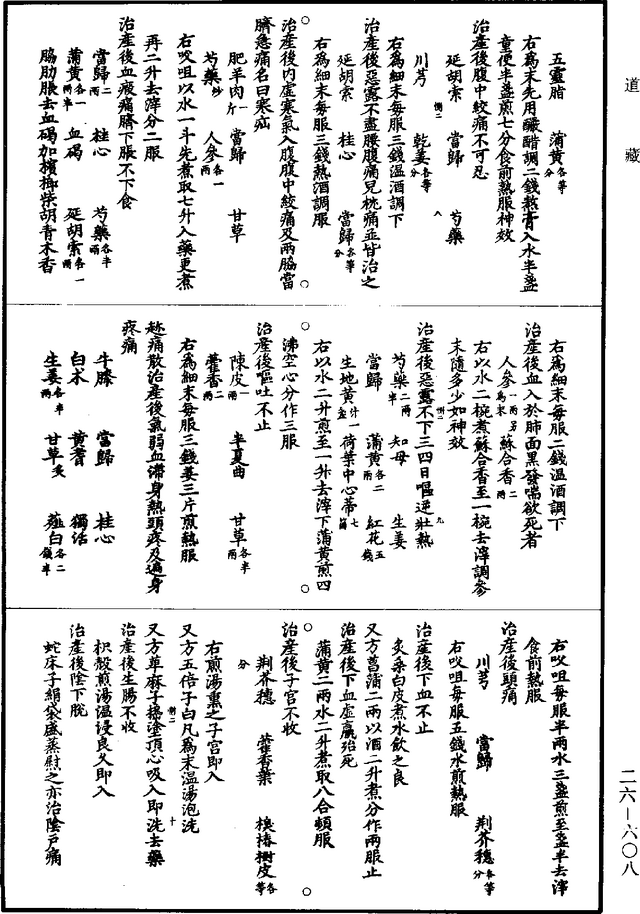 道藏
五靈脂 蒲黃各等分
右為末先用釅醋調二錢熬膏入水半盞
童便半盞煎七分食前熱服神效
治產後腹中絞痛不可忍
延胡索 當歸 芍藥
川芎 乾姜各等分
右為細末每服三錢溫酒調下
治產後惡露不盡腰腹痛兒枕痛並皆治之
延胡索 桂心 當歸各等分
右為細末每服三錢熱酒調服
治產後內虛寒氣入腹腹中絞痛及兩脇當
臍急痛名曰寒疝
肥羊肉一斤 當歸 甘草
芍藥炒 人參各一兩
右㕮咀以水一斗先煮取七升入藥更煮
再二升去滓分二服
治產後血瘕痛臍下脹不下食
當歸二兩 桂心 芍藥各半兩
蒲黃各一兩半 血碣 延胡索各一兩
脇肋脹去血碣加檳榔柴胡青木香
右為細末每服二錢溫酒調下
治產後血入於肺面黑發喘欲死者
人參一兩另為末 蘇合香二兩
右以水二椀煮蘇合香至一椀去滓調參
末隨多少如神效
治產後惡露不下三四日嘔逆壯熱
芍藥二兩半 知母 生姜
當歸 蒲黃各二兩 紅花五錢
生地黃汁一盞 荷葉中心蒂七箇
右以水二升煎至一升去滓下蒲黃煎四
沸空心分作三服
治產後嘔吐不止
陳皮一兩 半夏曲 甘草各半兩
藿香二兩
右為細末每服三錢姜三片煎熱服
趂痛散治產後氣弱血滯身熱頭疼及遍身
疼痛
牛膝 當歸 桂心
白朮 黃耆 獨活
生姜各半兩 甘草炙 薤白各二錢半
右㕮咀每服半兩水三盞煎至盞半去滓
食前熱服
治產後頭痛
川芎 當歸 荆芥穗各等分
右㕮咀每服五錢水煎熱服
治產後下血不止
炙桑白皮煮水飲之良
又方菖蒲二兩以酒二升煮分作兩服止
治產後下血虛羸殆死
蒲黃二兩水二升煮取八合頓服
治產後子宮不收
荆芥穗 藿香葉 椿樹皮各等分
右煎湯熏之子宮即入
又方五倍子白凡為末溫湯泡洗
又方草麻子搗塗頂心吸入即洗去藥
治產後生腸不收
枳殼煎湯溫浸良久即入
治產後陰下脫
蛇床子絹袋盛蒸熨之亦治陰戶痛
二六—六〇八